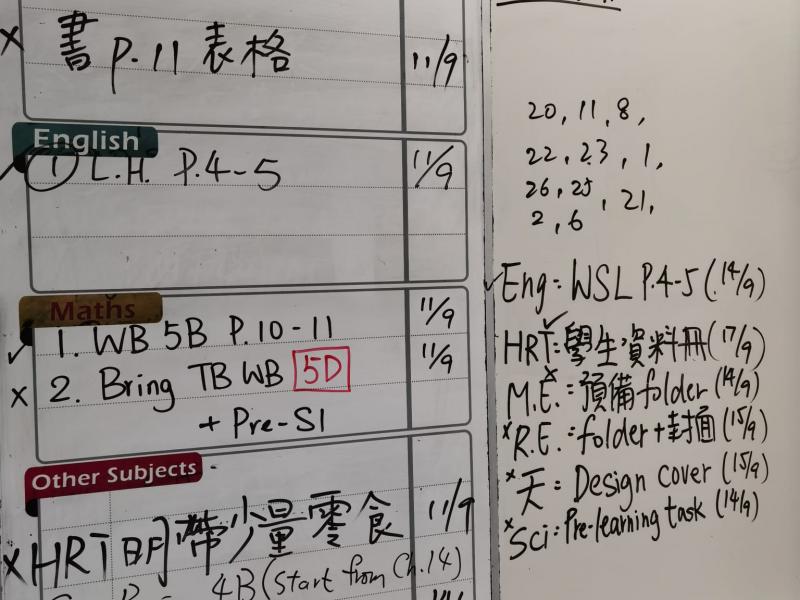 書 P.11 表格 11/9
English
① L.H. P.4-5 11/9
Maths
1. WB 5B P.10-11 11/9
2. Bring TB WB 5D 11/9
+ Pre-S1
Other Subjects
HRT 明帶少量零食 11/9
4B (Start from Ch.14)
20, 11, 8,
22, 23, 1,
26, 25, 21,
2, 6
Eng: WSL P.4-5 (14/9)
HRT: 學生資料冊 (17/9)
M.E.: 預備 folder (14/9)
R.E.: folder + 封面 (15/9)
天: Design cover (15/9)
Sci: Pre-learning task (14/9)